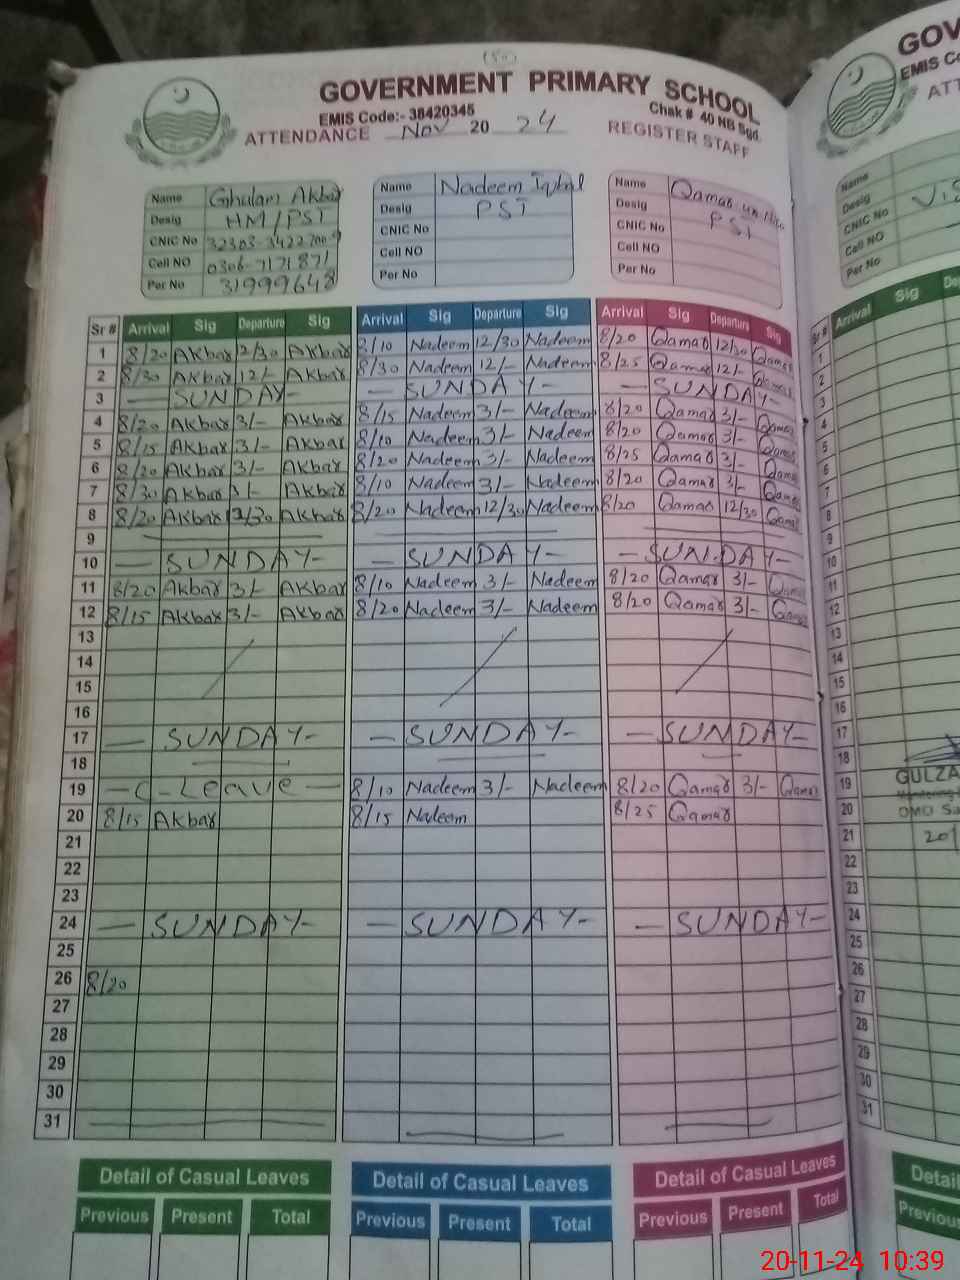 (80)
GOVERNMENT PRIMARY SCHOOL
EMIS Code:- 38420345 Chak # 40 NB Sgd.
ATTENDANCE Nov 20 24 REGISTER STAFF
Name Ghulam Akbar
Desig HM/PST
CNIC No 32303-3422700-9
Cell NO 0306-7171871
Per No 31999648
Name Nadeem Iqbal
Desig PST
CNIC No
Cell NO
Per No
Name Qamar
Desig PST
CNIC No
Cell NO
Per No
Sr # Arrival Sig Departure Sig Arrival Sig Departure Sig Arrival Sig Departure Sig
1 8/20 Akbar 12/30 Akbar 8/10 Nadeem 12/30 Nadeem 8/20 Qamar 12/30 Qamar
2 8/30 Akbar 12/- Akbar 8/30 Nadeem 12/- Nadeem 8/25 Qamar 12/- Qamar
3 — SUNDAY- — SUNDAY- — SUNDAY-
4 8/20 Akbar 3/- Akbar 8/15 Nadeem 3/- Nadeem 8/20 Qamar 3/- Qamar
5 8/15 Akbar 3/- Akbar 8/10 Nadeem 3/- Nadeem 8/20 Qamar 3/- Qamar
6 8/20 Akbar 3/- Akbar 8/20 Nadeem 3/- Nadeem 8/25 Qamar 3/- Qamar
7 8/30 Akbar 3/- Akbar 8/10 Nadeem 3/- Nadeem 8/20 Qamar 3/- Qamar
8 8/20 Akbar 12/30 Akbar 8/20 Nadeem 12/30 Nadeem 8/20 Qamar 12/30 Qamar
9
10 — SUNDAY- — SUNDAY- — SUNDAY-
11 8/20 Akbar 3/- Akbar 8/10 Nadeem 3/- Nadeem 8/20 Qamar 3/- Qamar
12 8/15 Akbar 3/- Akbar 8/20 Nadeem 3/- Nadeem 8/20 Qamar 3/- Qamar
13
14
15
16
17 — SUNDAY- — SUNDAY- — SUNDAY-
18
19 — C-Leave — 8/10 Nadeem 3/- Nadeem 8/20 Qamar 3/- Qamar
20 8/15 Akbar 8/15 Nadeem 8/25 Qamar
21
22
23
24 — SUNDAY- — SUNDAY- — SUNDAY-
25
26 8/20
27
28
29
30
31
Detail of Casual Leaves Detail of Casual Leaves Detail of Casual Leaves
Previous Present Total Previous Present Total Previous Present Total
GOV
EMIS Co
ATT
Name
Desig
CNIC No
Cell NO
Per No
Sr # Arrival Sig De
1
2
3
4
5
6
7
8
9
10
11
12
13
14
15
16
17
18
19 GULZA
20 DMO Sa
21 201
22
23
24
25
26
27
28
29
30
31
Detail
Previous
20-11-24 10:39